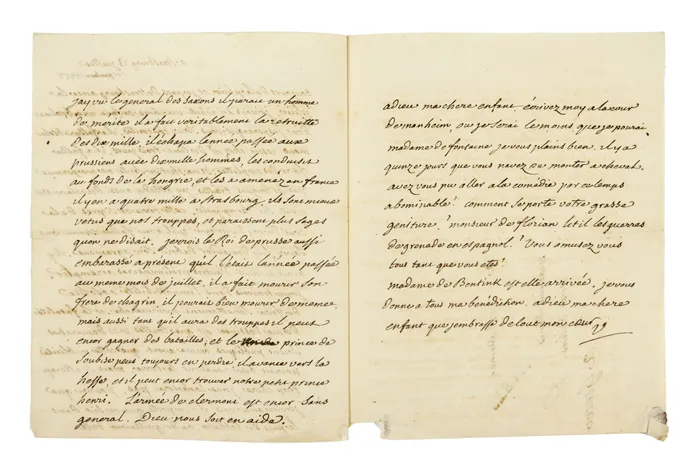 jay vu le general des saxons il parait un homme
de merite il a fait veritablement la retraitte
des dix mille, il échapa lannée passée aux
prussiens avec dix mille hommes, les conduisit
au fonds de la hongrie, et les a amenez en france
il y en a quatre mille a strasbourg, ils sont mieux
vetus que nos trouppes, et paraissent plus sages
quon ne disait, je crois le Roi de prusse aussi
embarassé a present quil l'était lannée passée
au meme mois de juillet, il a fait mourir son
frere de chagrin, il pourait bien mourir de meme,
mais aussi tant quil aura des trouppes il peut
encor gagner des batailles, et le prince de
soubise peut toujours en perdre, il avance vers la
hesse, et il peut encor trouver notre petit prince
henri. L'armée de clermont est encor sans
general. Dieu nous soit en aide.
adieu ma chere enfant, écrivez moy a la cour
de manheim, ou je serai le moins que je pourai
madame de fontaine je vous plains bien. il y a
quinze jours que vous navez pu monter a cheval.
avez vous pu aller a la comédie par ce temps
abominable? comment se porte votre grasse
geniture? monsieur de florian lit il les guerres
de grenade en espagnol? Vous amusez vous
tous tant que vous etes?
madame de Bentink est elle arrivée. je vous
donne a tous ma benédiction. adieu ma chere
enfant que jembrasse de tout mon cœur